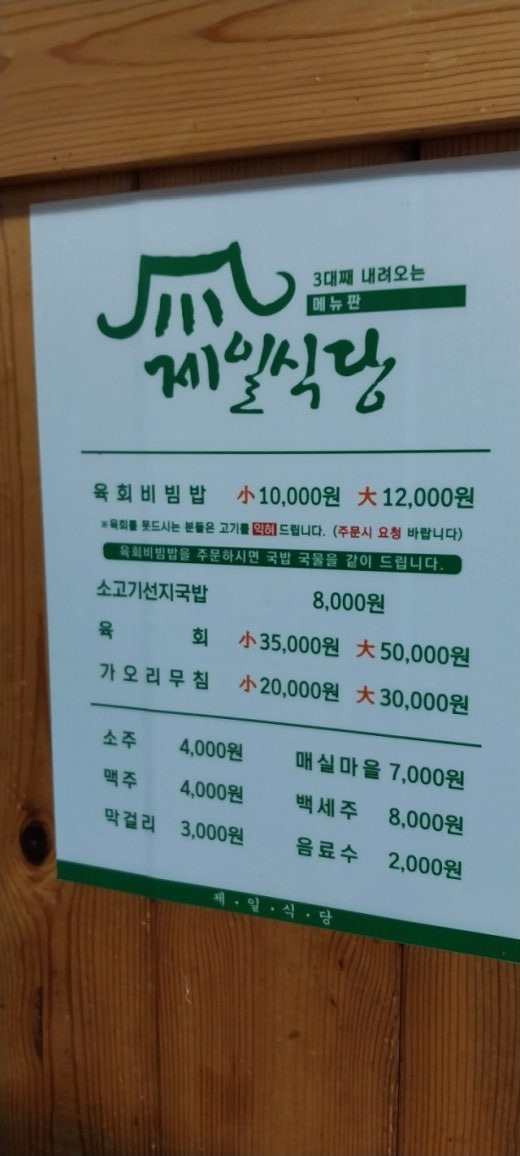 3대째 내려오는
메뉴판
제일식당
육회비빔밥 小 10,000원 大 12,000원
※육회를 못드시는 분들은 고기를 익혀 드립니다. (주문시 요청 바랍니다)
육회비빔밥을 주문하시면 국밥 국물을 같이 드립니다.
소고기선지국밥 8,000원
육회 小 35,000원 大 50,000원
가오리무침 小 20,000원 大 30,000원
소주 4,000원 매실마을 7,000원
맥주 4,000원 백세주 8,000원
막걸리 3,000원 음료수 2,000원
제·일·식·당